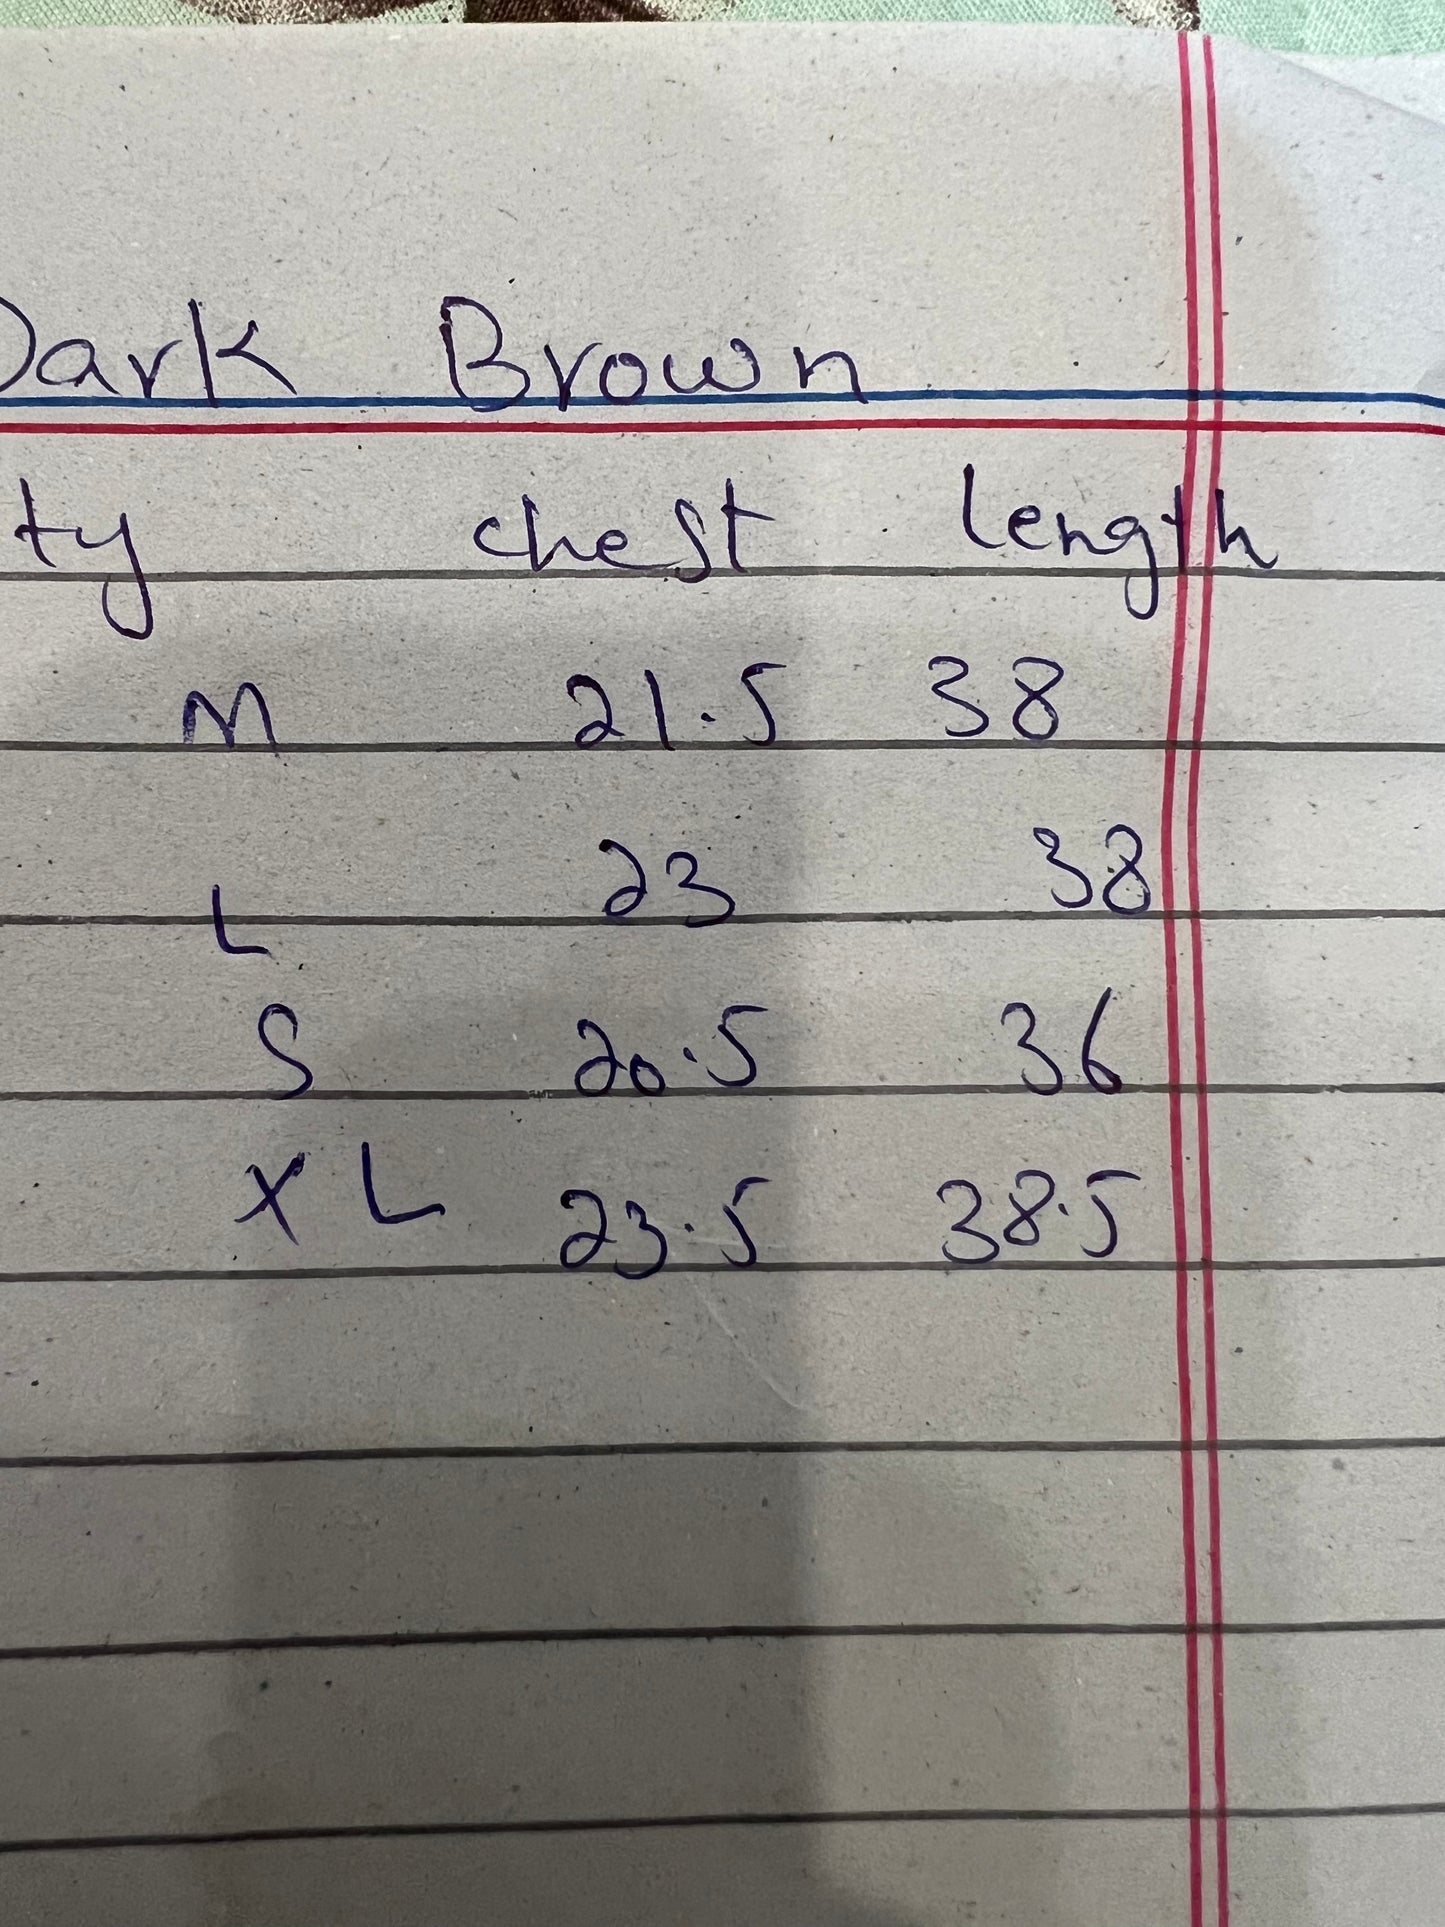 Dark Brown
ty chest length
M 21.5 38
L 23 38
S 20.5 36
XL 23.5 38.5